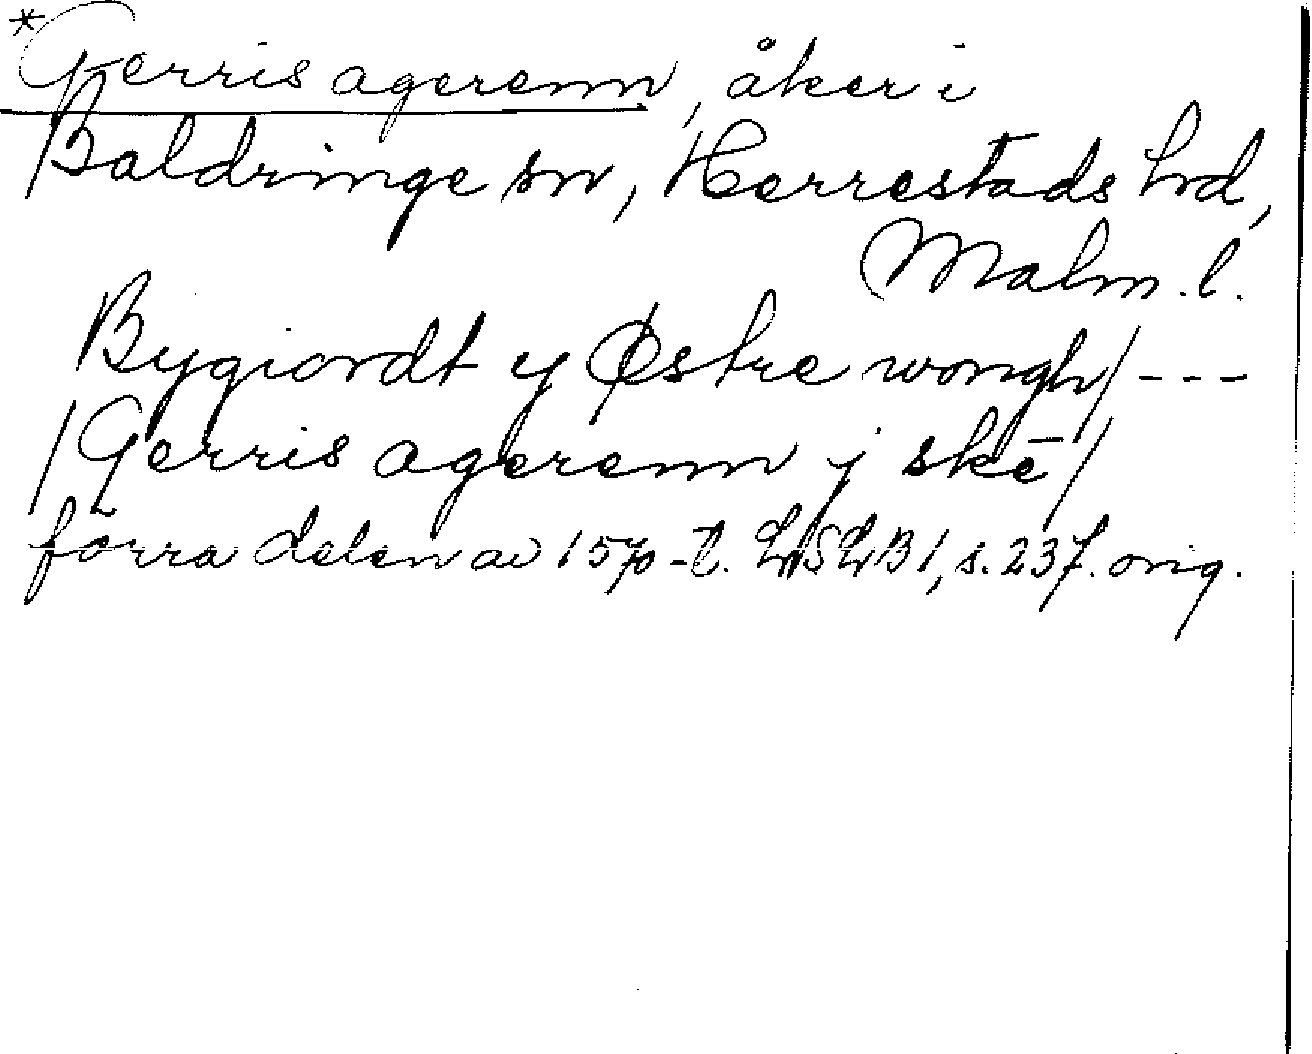 *Gerris agerenn, åker i
Baldringe sn, Herrestads hrd,
Malm. l.
Bygiordt y Østre wongh/ - - -
/Gerris agerenn j skē/
förra delen av 1570-t. LSLB 1, s. 237. orig.